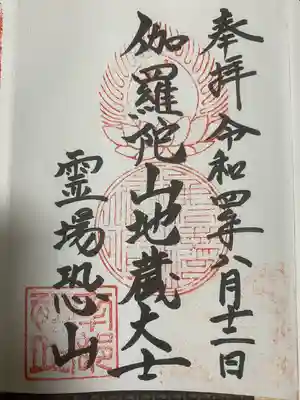 奉拝 令和四年八月十二日
伽羅陀山地蔵大士
霊場恐山